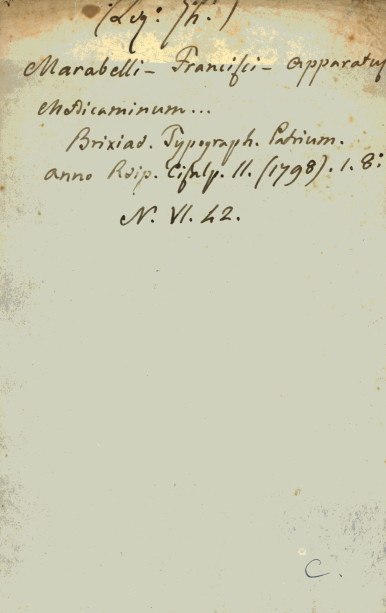 Marabelli - Francisci - Apparatus
Medicaminum...
Brixiae. Typograph. Patrium.
Anno Reip. Cisalp. II. (1798). 1. 8:
N. VI. 42.
C.